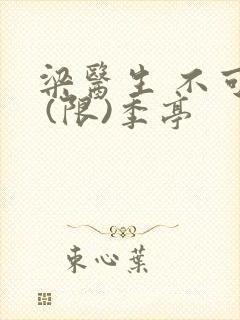 梁醫生 不可
(限)季亭
束心葉